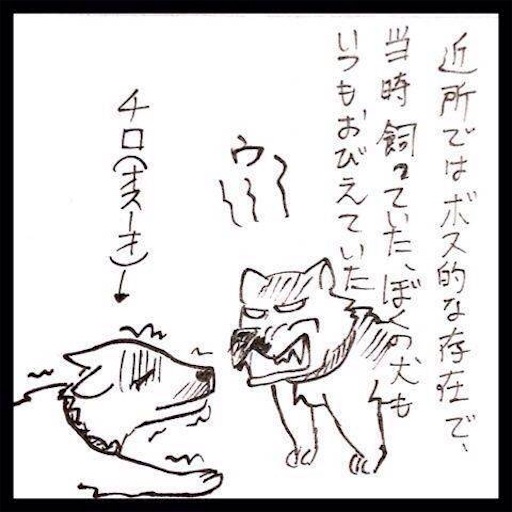 近所ではボス的な存在で、
当時飼っていた、ぼくの犬も
いつもおびえていた
ウ〜〜〜
チロ(オス一才)